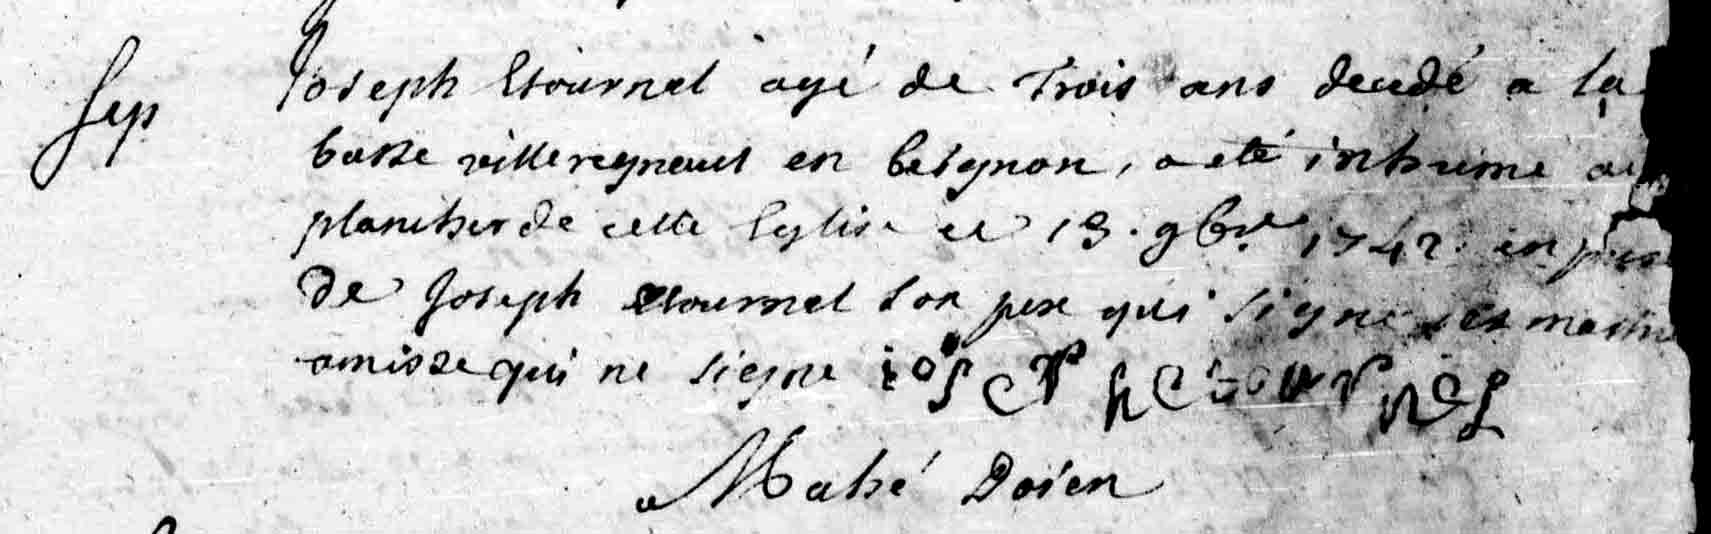 Sep Joseph Etournel agé de Trois ans decedé a la
basse villeregneult en beignon, a eté inhumé au
plancher de cette Eglise ce 13. 9bre 1742. en
de Joseph etournel son pere qui signe et
qui ne signe ioseph etournel
Mahé Doïen